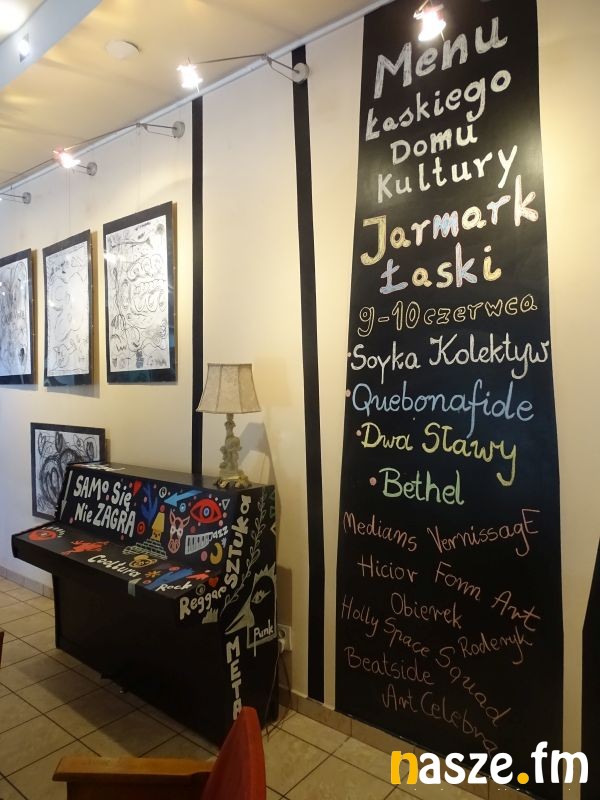 Menu
Łaskiego
Domu
Kultury
Jarmark
Łaski
9-10 czerwca
Soyka Kolektyw
Quebonafide
Dwa Sławy
Bethel
Medians VernissagE
Hicior Form Art
Obierek
Holly Space Squad
Roderyk
Beatside
Art Celebra
SAMO SIĘ
NIE ZAGRA
Jazz
Cooltura
Rock
Reggae
SZTUKA
Punk
META
nasze.fm